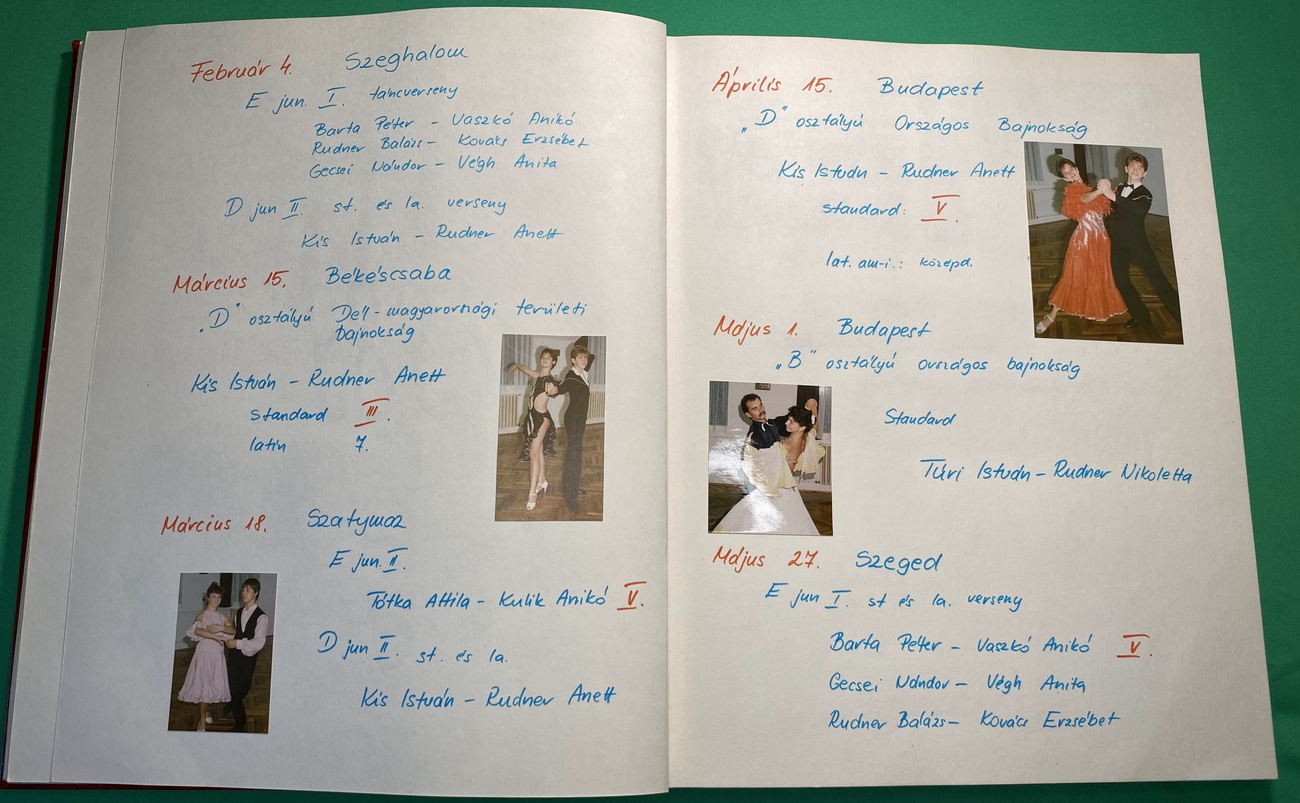 Február 4. Szeghalom
E jun. I. táncverseny
Barta Péter – Vaszkó Anikó
Rudner Balázs – Kovács Erzsébet
Gecsei Nándor – Végh Anita
D jun II. st. és la. verseny
Kis István – Rudner Anett
Március 15. Békéscsaba
„D" osztályú Dél-magyarországi területi
bajnokság
Kis István – Rudner Anett
standard III.
latin 7.
Március 18. Szatymaz
E jun. II.
Tótka Attila – Kulik Anikó V.
D jun II. st. és la.
Kis István – Rudner Anett
Április 15. Budapest
„D" osztályú Országos Bajnokság
Kis István – Rudner Anett
standard: V.
lat. am-i.: középd.
Május 1. Budapest
„B" osztályú országos bajnokság
Standard
Túri István – Rudner Nikoletta
Május 27. Szeged
E jun I. st és la. verseny
Barta Péter – Vaszkó Anikó V.
Gecsei Nándor – Végh Anita
Rudner Balázs – Kovács Erzsébet